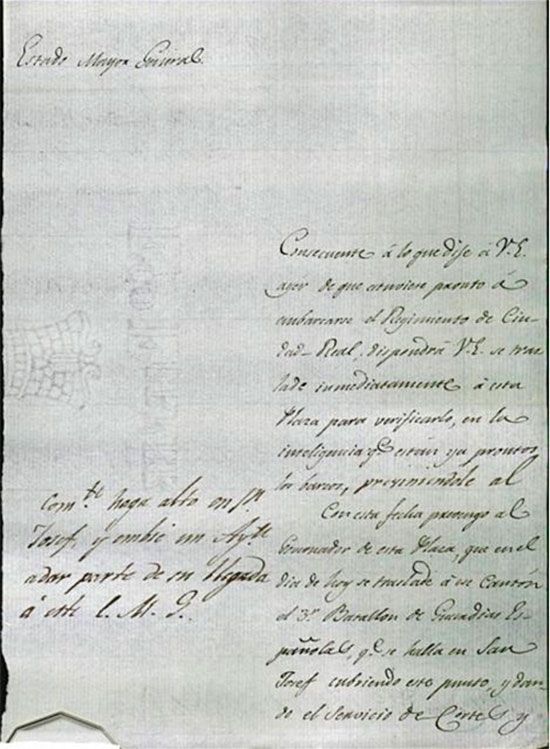 Estado Mayor General
Consecuente á lo que dije á V.E.
ayer de que estuviere pronto á
embarcarse el Regimiento de Ciu-
dad-Real, dispondrá V.E. se tras-
lade inmediatamente á esta
Plaza para verificarlo, en la
inteligencia qe. están ya prontos
los barcos, previniendole al
Comte. haga alto en Sn.
Josef, y embie un Aytte.
a dar parte de su llegada
á este E. M. G.
Con esta fecha prevengo al
Governador de esta Plaza, que en el
dia de hoy se traslade á ese Canton
el 3er. Batallon de Guardias Es-
pañolas, qe. se halla en San
Josef cubriendo este punto, y dan-
do el Servicio de Cortes, y